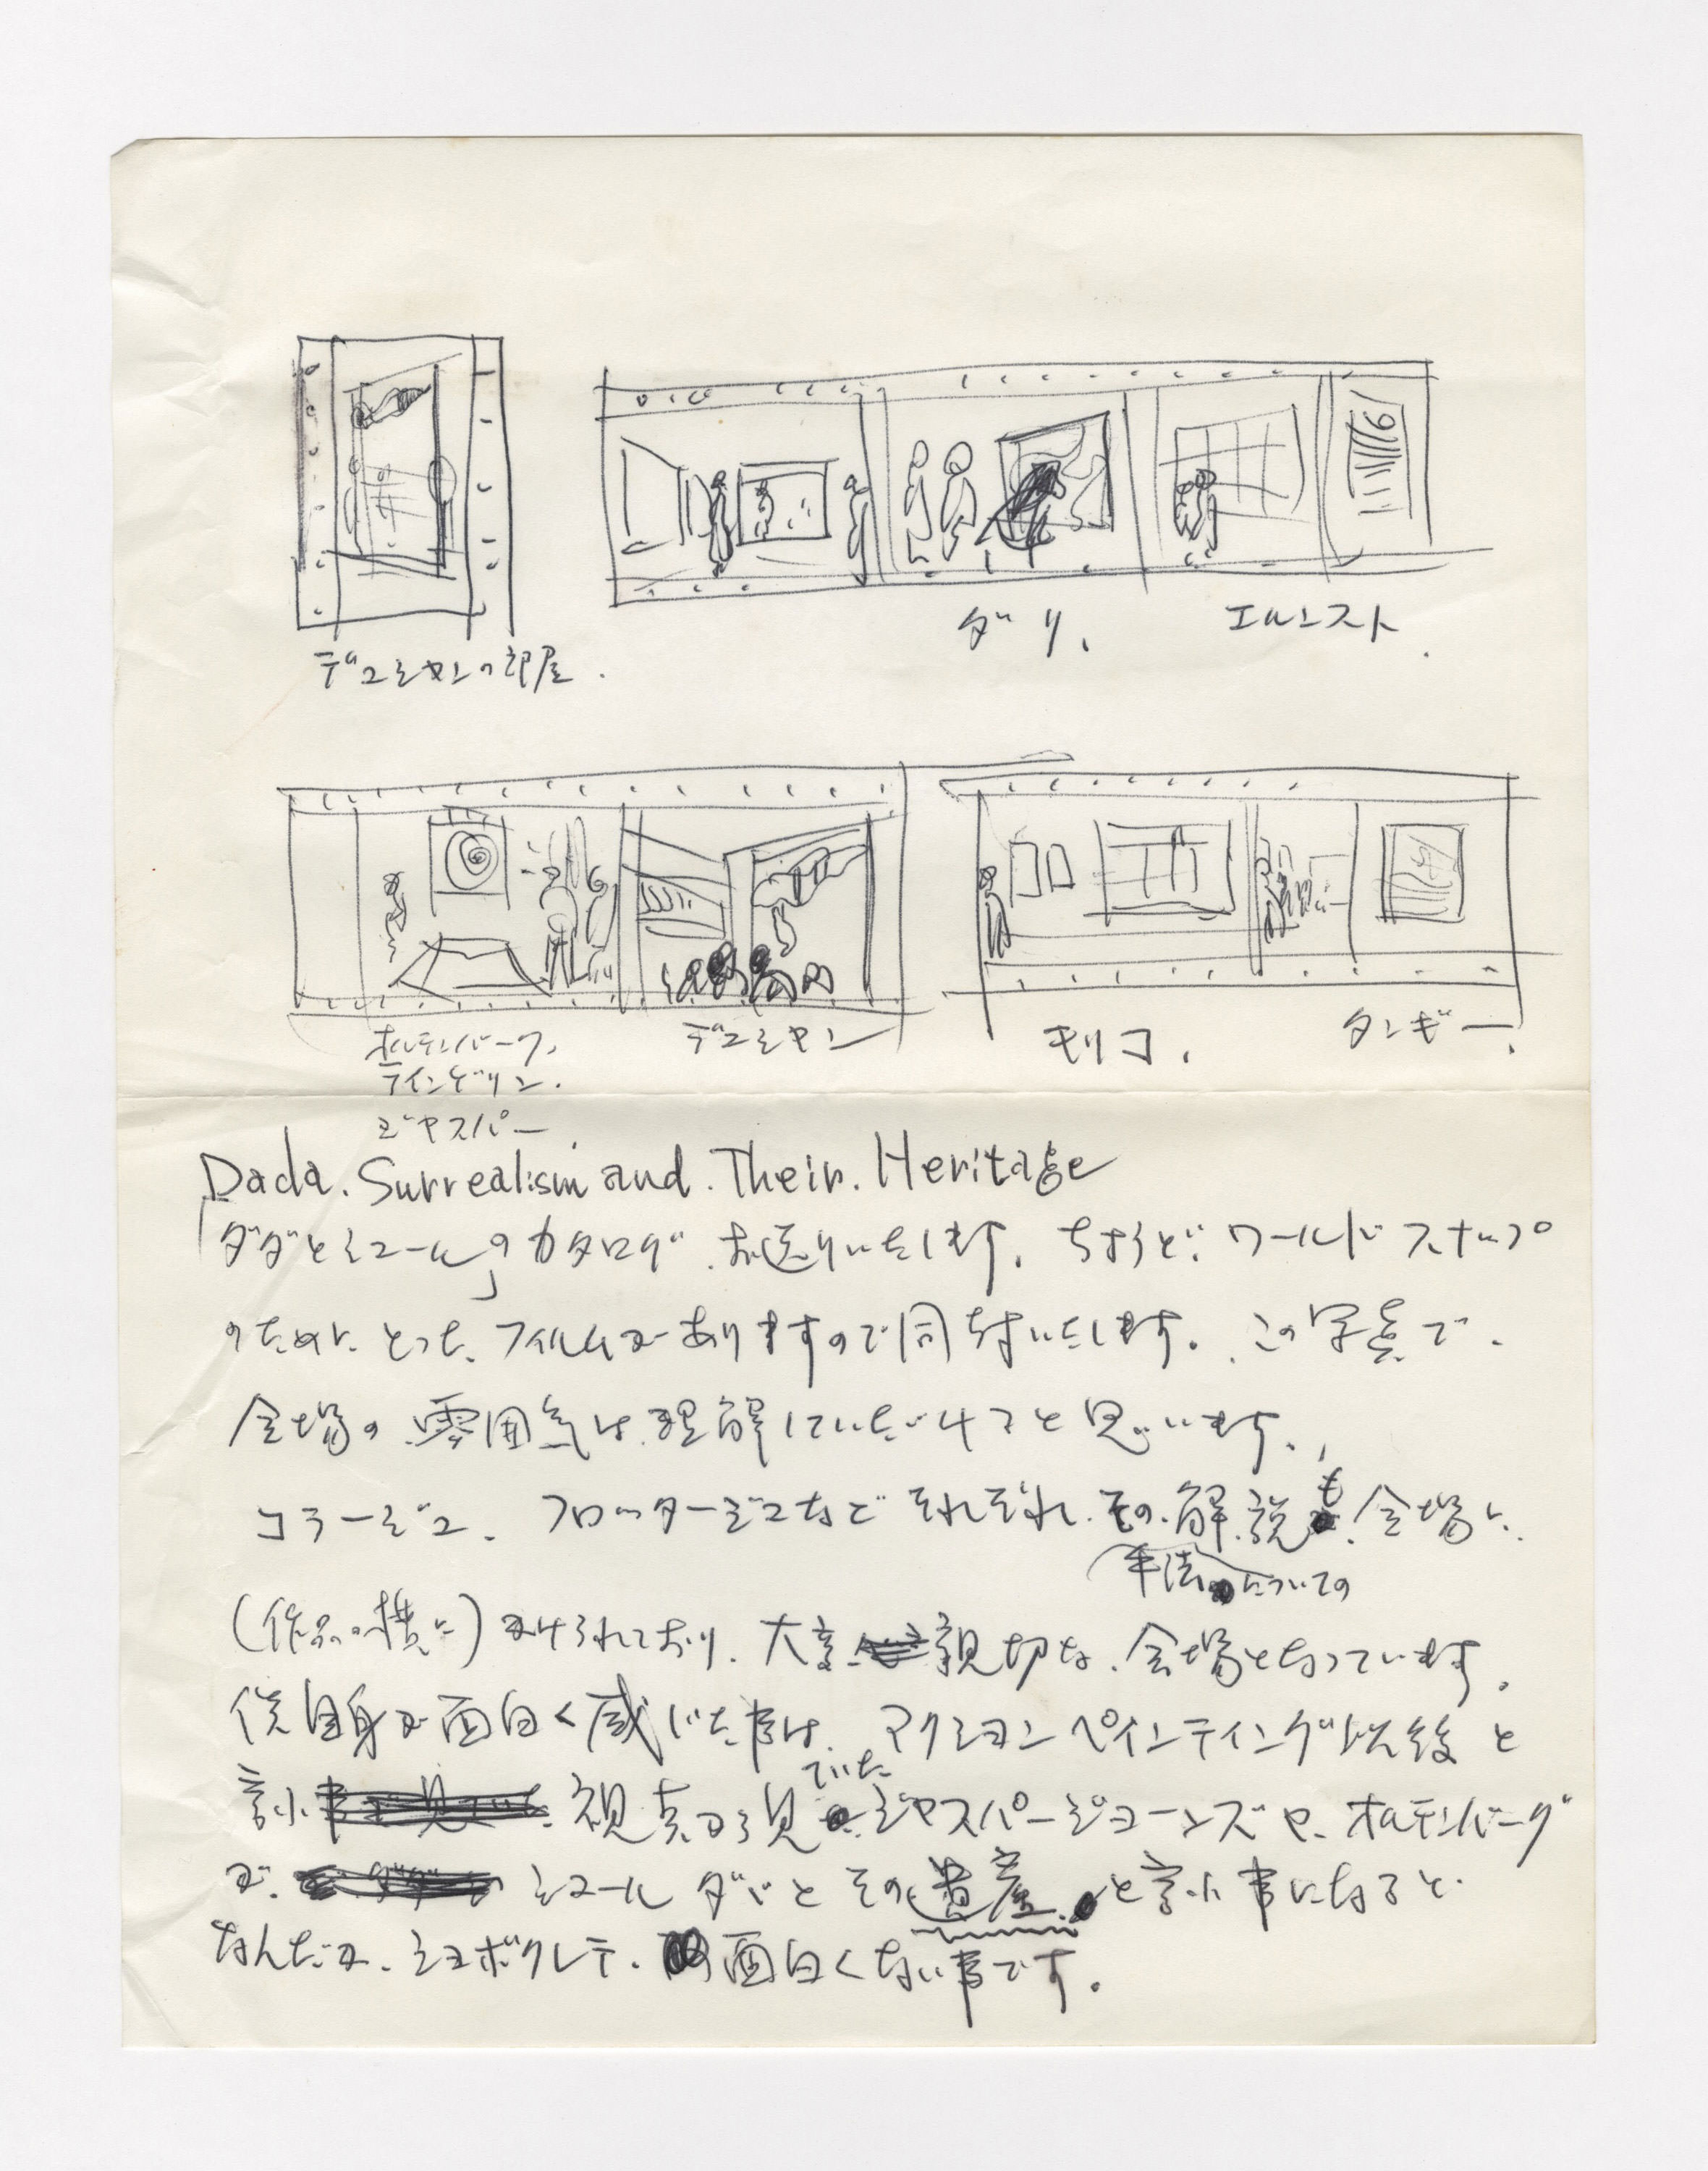 デュシャンの部屋.
ダリ.
エルンスト.
オルデンバーグ.
ティンゲリン.
ジャスパー.
デュシャン
キリコ.
タンギー.
Dada. Surrealism and. Their. Heritage
「ダダとシュール」のカタログ.お送りいたします. ちょうど. ワールドスナップ
のために とった. フィルムがありますので同封いたします. この写真で.
会場の雰囲気は.理解していただけると思います.
コラージュ. フロッタージュなど それぞれ. その.解説も.会場に.
手法についての
(作品の横に)かけられており. 大変 親切な.会場となっています.
僕自身が面白く感じた事は. アクションペインティング以後と
言う 視点から見ていたジャスパージョーンズや. オルデンバーグ
が. シュールダダとその遺産.と言う事になると.
なんだか. ショボクレテ. 面白くない事です.